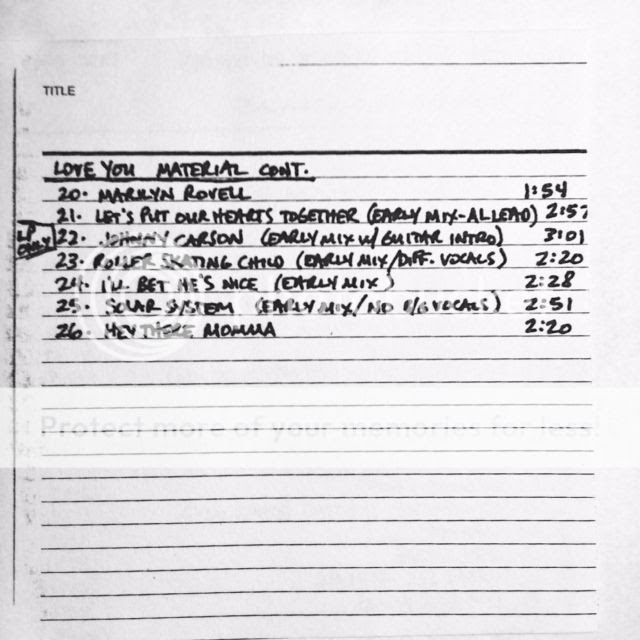 TITLE
LOVE YOU MATERIAL CONT.
20. MARILYN ROVELL 1:54
21. LET'S PUT OUR HEARTS TOGETHER (EARLY MIX-AL LEAD) 2:57
LP ONLY 22. JOHNNY CARSON (EARLY MIX W/ GUITAR INTRO) 3:01
23. ROLLER SKATING CHILD (EARLY MIX/DIFF. VOCALS) 2:20
24. I'LL BET HE'S NICE (EARLY MIX) 2:28
25. SOLAR SYSTEM (EARLY MIX/NO B/G VOCALS) 2:51
26. HEY THERE MOMMA 2:20
Protect more of your memories for less!